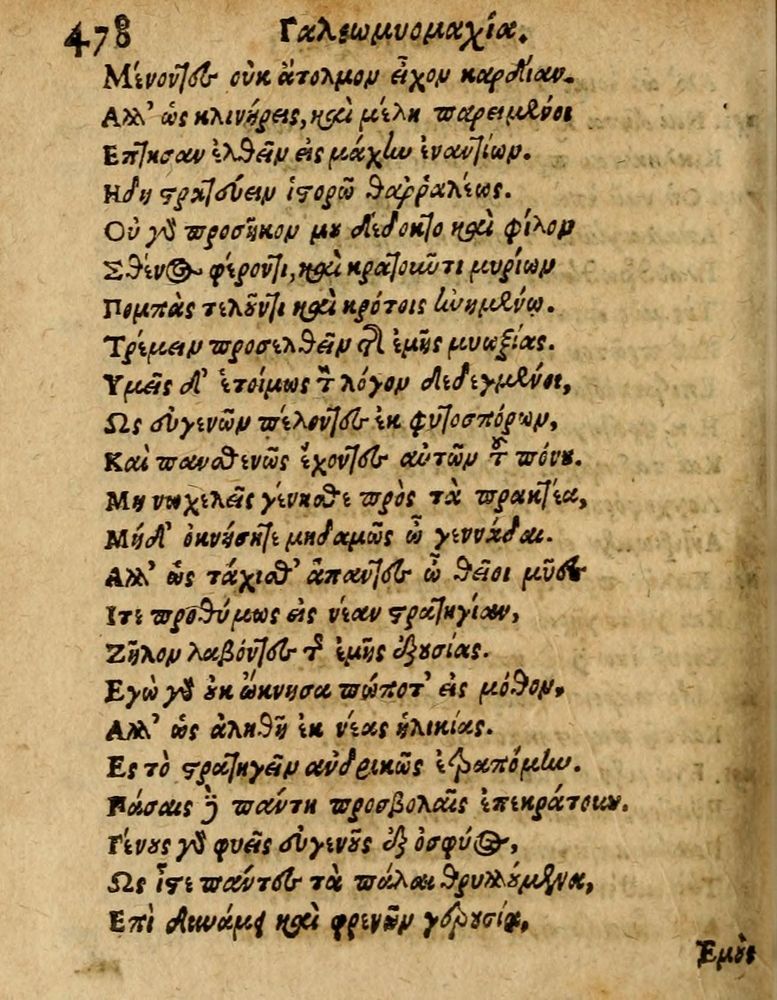 478 Γαλεωμυομαχία.
Μένοντες οὐκ ἄτολμον εἶχον καρδίαν.
Αλλ' ὡς κλινήρεις, καὶ μέλη παρειμένοι
Επτησαν ἐλθεῖν εἰς μάχην ἐναντίων.
Ηδη στρατεύειν ἱστορῶ θαῤῥαλέως.
Οὐ γὰρ προσῆκον μου δέδοκτο καὶ φίλον
Σθένος φέροντι, καὶ κρατοῦντι μυρίων
Πομπὰς τελοῦντι καὶ κρότοις ἐνημένῳ.
Τρέμειν προσελθεῖν ἐμῆς μυωξίας.
Υμεῖς δ' ἑτοίμως τὸν λόγον δεδεγμένοι,
Ως εὐγενῶν πέλοντες ἐκ φυτοσπόρων,
Καὶ πανσθενῶς ἔχοντες αὐτῶν τοῦ πόνου.
Μη νωχελεῖς γένησθε πρὸς τὰ πρακτέα,
Μήδ' ὀκνήσητε μηδαμῶς ὦ γεννάδαι.
Αλλ' ὡς τάχισθ' ἅπαντες ὦ θεῖοι μῦες
Ιτε προθύμως εἰς νέαν στρατηγίαν,
Ζῆλον λαβόντες τῆς ἐμῆς ἐξουσίας.
Εγὼ γὰρ οὐκ ὤκνησα πώποτ' εἰς μόθον,
Αλλ' ὡς ἀληθῆ ἐκ νέας ἡλικίας.
Ες τὸ στρατηγεῖν ἀνδρικῶς ἐτραπόμην.
Πάσαις δὲ πάντη προσβολαῖς ἐπεκράτουν.
Γένους γὰρ φυεῖς εὐγενοῦς ἐξ ὀσφύος,
Ως ἴστε πάντες τὰ πάλαι θρυλλούμενα,
Επὶ δυνάμει καὶ φρενῶν γερουσίᾳ,
Εμοῦς